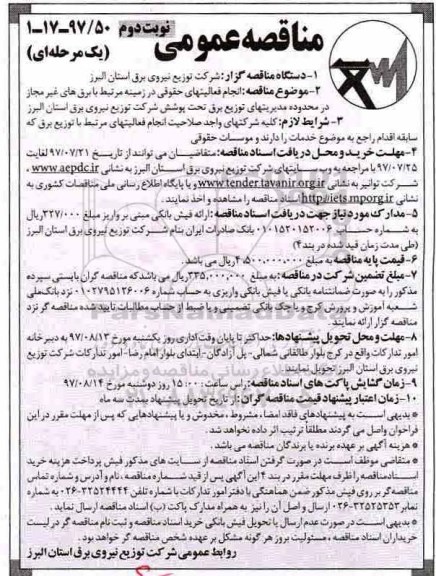 مناقصه عمومی
نوبت دوم
۱-۱۷-۹۷/۵۰
(یک مرحله‌ای)
۱- دستگاه مناقصه گزار: شرکت توزیع نیروی برق استان البرز
۲- موضوع مناقصه: انجام فعالیتهای حقوقی در زمینه مرتبط با برق های غیر مجاز
در محدوده مدیریتهای توزیع برق تحت پوشش شرکت توزیع نیروی برق استان البرز
۳- شرایط لازم: کلیه شرکتهای واجد صلاحیت انجام فعالیتهای مرتبط با توزیع برق که
سابقه اقدام راجع به موضوع خدمات را دارند و موسسات حقوقی
۴- مهلت خرید و محل دریافت اسناد مناقصه: متقاضیان می توانند از تاریخ ۹۷/۰۷/۲۱ لغایت
۹۷/۰۷/۲۵ با مراجعه به وب سایتهای شرکت توزیع نیروی برق استان البرز به نشانی www.aepdc.ir ،
شرکت توانیر به نشانی www.tender.tavanir.org.ir و یا پایگاه اطلاع رسانی ملی مناقصات کشوری به
نشانی http://iets.mporg.ir اسناد مناقصه را مشاهده و اخذ نمایند.
۵- مدارک مورد نیاز جهت دریافت اسناد مناقصه: ارائه فیش بانکی مبنی بر واریز مبلغ ۳۲۷/۰۰۰ ریال
به شماره حساب ۰۱۰۱۵۲۰۱۵۲۰۰۶ بانک صادرات ایران بنام شرکت توزیع نیروی برق استان البرز
(طی مدت زمان قید شده در بند۴)
۶- قیمت پایه مناقصه به مبلغ ۴,۵۰۰,۰۰۰,۰۰۰ ریال می باشد.
۷- مبلغ تضمین شرکت در مناقصه: به مبلغ ۳۳۵,۰۰۰,۰۰۰ ریال می باشد که مناقصه گران بایستی سپرده
مذکور را به صورت ضمانتنامه بانکی یا فیش بانکی واریزی به حساب شماره ۰۱۰۲۷۹۵۱۲۶۰۰۶ نزد بانک ملی
شعبه آموزش و پرورش کرج و یا چک بانکی تضمینی و یا ضبط از حساب مطالبات تایید شده مناقصه گر نزد
مناقصه گزار ارائه نمایند.
۸- مهلت و محل تحویل پیشنهادها: حداکثر تا پایان وقت اداری روز یکشنبه مورخ ۹۷/۰۸/۱۳ به دبیرخانه
امور تدارکات واقع در کرج بلوار طالقانی شمالی- پل آزادگان- ابتدای بلوار امام رضا- امور تدارکات شرکت توزیع
نیروی برق استان البرز تحویل نمایند.
۹- زمان گشایش پاکت های اسناد مناقصه: راس ساعت: ۱۵:۰۰ روز دوشنبه مورخ ۹۷/۰۸/۱۴
۱۰- زمان اعتبار پیشنهاد قیمت مناقصه گران: از تاریخ تحویل پیشنهاد بمدت سه ماه
* بدیهی است به پیشنهادهای فاقد امضا، مشروط، مخدوش و یا پیشنهادهایی که پس از مهلت مقرر در این
فراخوان واصل می گردند مطلقاً ترتیب اثر داده نخواهد شد.
* هزینه آگهی بر عهده برنده یا برندگان مناقصه می باشد.
* متقاضی موظف است در صورت گرفتن اسناد مناقصه از سایت های مذکور فیش پرداخت هزینه خرید
اسناد مناقصه را ظرف مهلت مقرر در بند ۴ این آگهی پس از قید شماره مناقصه، نام و آدرس و شماره تماس
مناقصه گر بر روی فیش مذکور ضمن هماهنگی با دفتر امور تدارکات با شماره تلفن ۳۲۵۲۴۴۴۴-۰۲۶ به شماره
نمابر ۳۲۵۲۵۳۵۲-۰۲۶ ارسال و اصل آن را نیز به همراه مدارک پاکت (ب) اسناد مناقصه ارسال نماید.
* بدیهی است در صورت عدم ارسال یا تحویل فیش بانکی خرید اسناد مناقصه و ثبت نام مناقصه گر در لیست
خریداران اسناد مناقصه، مسئولیت بروز هر گونه مشکل بر عهده شخص مناقصه گر خواهد بود.
روابط عمومی شرکت توزیع نیروی برق استان البرز